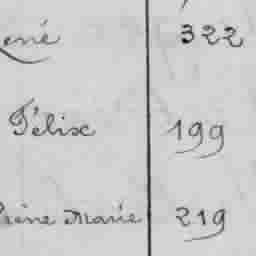 René 322
Félix 199
Reine Marie 219